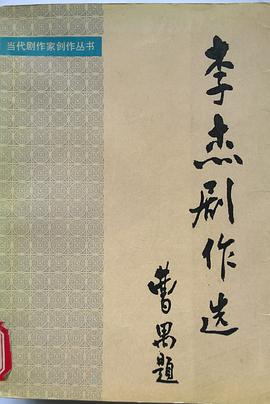 当代剧作家创作丛书
李杰剧作选
曹禺题